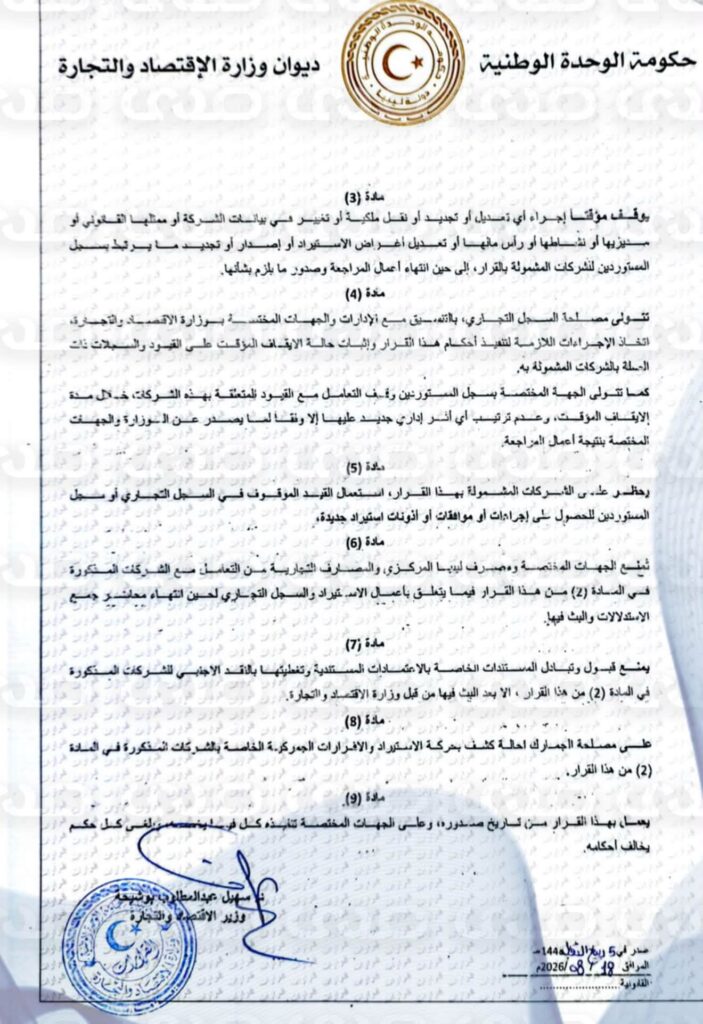 حكومة الوحدة الوطنية
ديوان وزارة الإقتصاد والتجارة
حكومة الوحدة الوطنية
دولة ليبيا
مادة (3)
يوقف مؤقتاً إجراء أي تعديل أو تجديد أو نقل ملكية أو تغيير في بيانات الشركة أو ممثلها القانوني أو
مديريها أو نشاطها أو رأس مالها أو تعديل أغراض الاستيراد أو إصدار أو تجديد ما يرتبط بسجل
المستوردين للشركات المشمولة بالقرار، إلى حين انتهاء أعمال المراجعة وصدور ما يلزم بشأنها.
مادة (4)
تتولى مصلحة السجل التجاري، بالتنسيق مع الإدارات والجهات المختصة بوزارة الاقتصاد والتجارة،
اتخاذ الإجراءات اللازمة لتنفيذ أحكام هذا القرار وإثبات حالة الايقاف المؤقت على القيود والسجلات ذات
الصلة بالشركات المشمولة به.
كما تتولى الجهة المختصة بسجل المستوردين وقف التعامل مع القيود المتعلقة بهذه الشركات خلال مدة
الإيقاف المؤقت، وعدم ترتيب أي أثر إداري جديد عليها إلا وفقا لما يصدر عن الوزارة والجهات
المختصة بنتيجة أعمال المراجعة.
مادة (5)
يحظر على الشركات المشمولة بهذا القرار، استعمال القيد الموقوف في السجل التجاري أو سجل
المستوردين للحصول على إجراءات أو موافقات أو أذونات استيراد جديدة.
مادة (6)
تُمنع الجهات المختصة ومصرف ليبيا المركزي والمصارف التجارية من التعامل مع الشركات المذكورة
في المادة (2) من هذا القرار فيما يتعلق بأعمال الاستيراد والسجل التجاري لحين انتهاء محاضر جمع
الاستدلالات والبث فيها.
مادة (7)
يمنع قبول وتبادل المستندات الخاصة بالاعتمادات المستندية وتغطيتها بالنقد الاجنبي للشركات المذكورة
في المادة (2) من هذا القرار ، الا بعد البث فيها من قبل وزارة الاقتصاد والتجارة.
مادة (8)
على مصلحة الجمارك احالة كشف بحركة الاستيراد والاقرارات الجمركية الخاصة بالشركات المذكورة في المادة
(2) من هذا القرار.
مادة (9)
يعمل بهذا القرار من تاريخ صدوره، وعلى الجهات المختصة تنفيذه كل فيما يخصه ويلغى كل حكم
يخالف أحكامه.
سهيل عبدالمطلوب بوشيحة
وزير الاقتصاد والتجارة
صدر في 5 ربيع 144هـ
الموافق 18 / 08 / 2026م
القانونية